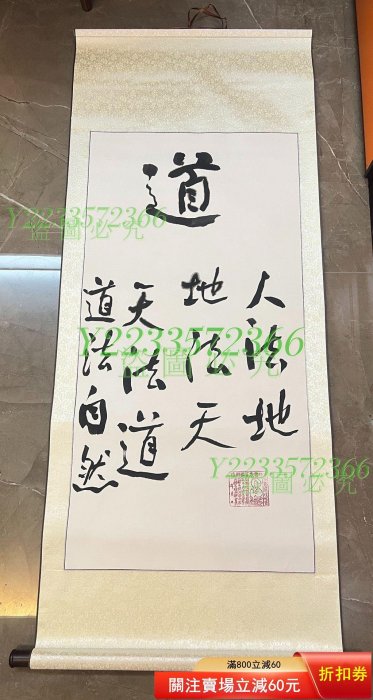 道
人法地
地法天
天法道
道法自然
Y2233572366
盜圖必究
Y2233572366
盜圖必究
Y2233572366
盜圖必究
滿800立減60
關注賣場立減60元
折扣券